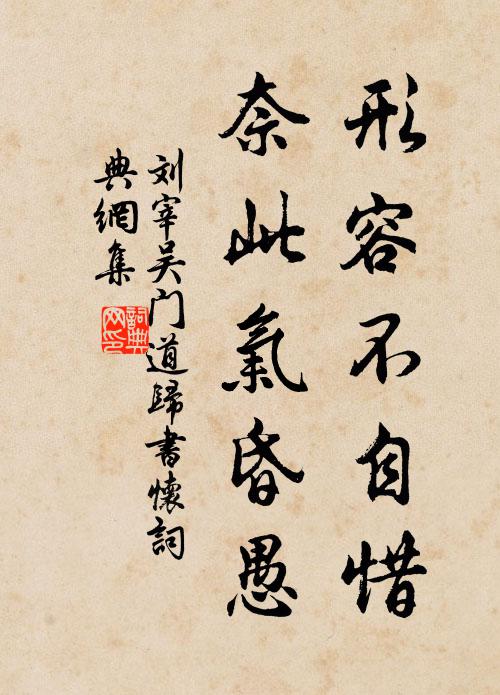 形容不自惜
奈此氣昏愚
刘宰吴门道歸書懷詞
典網集
詞典
网印